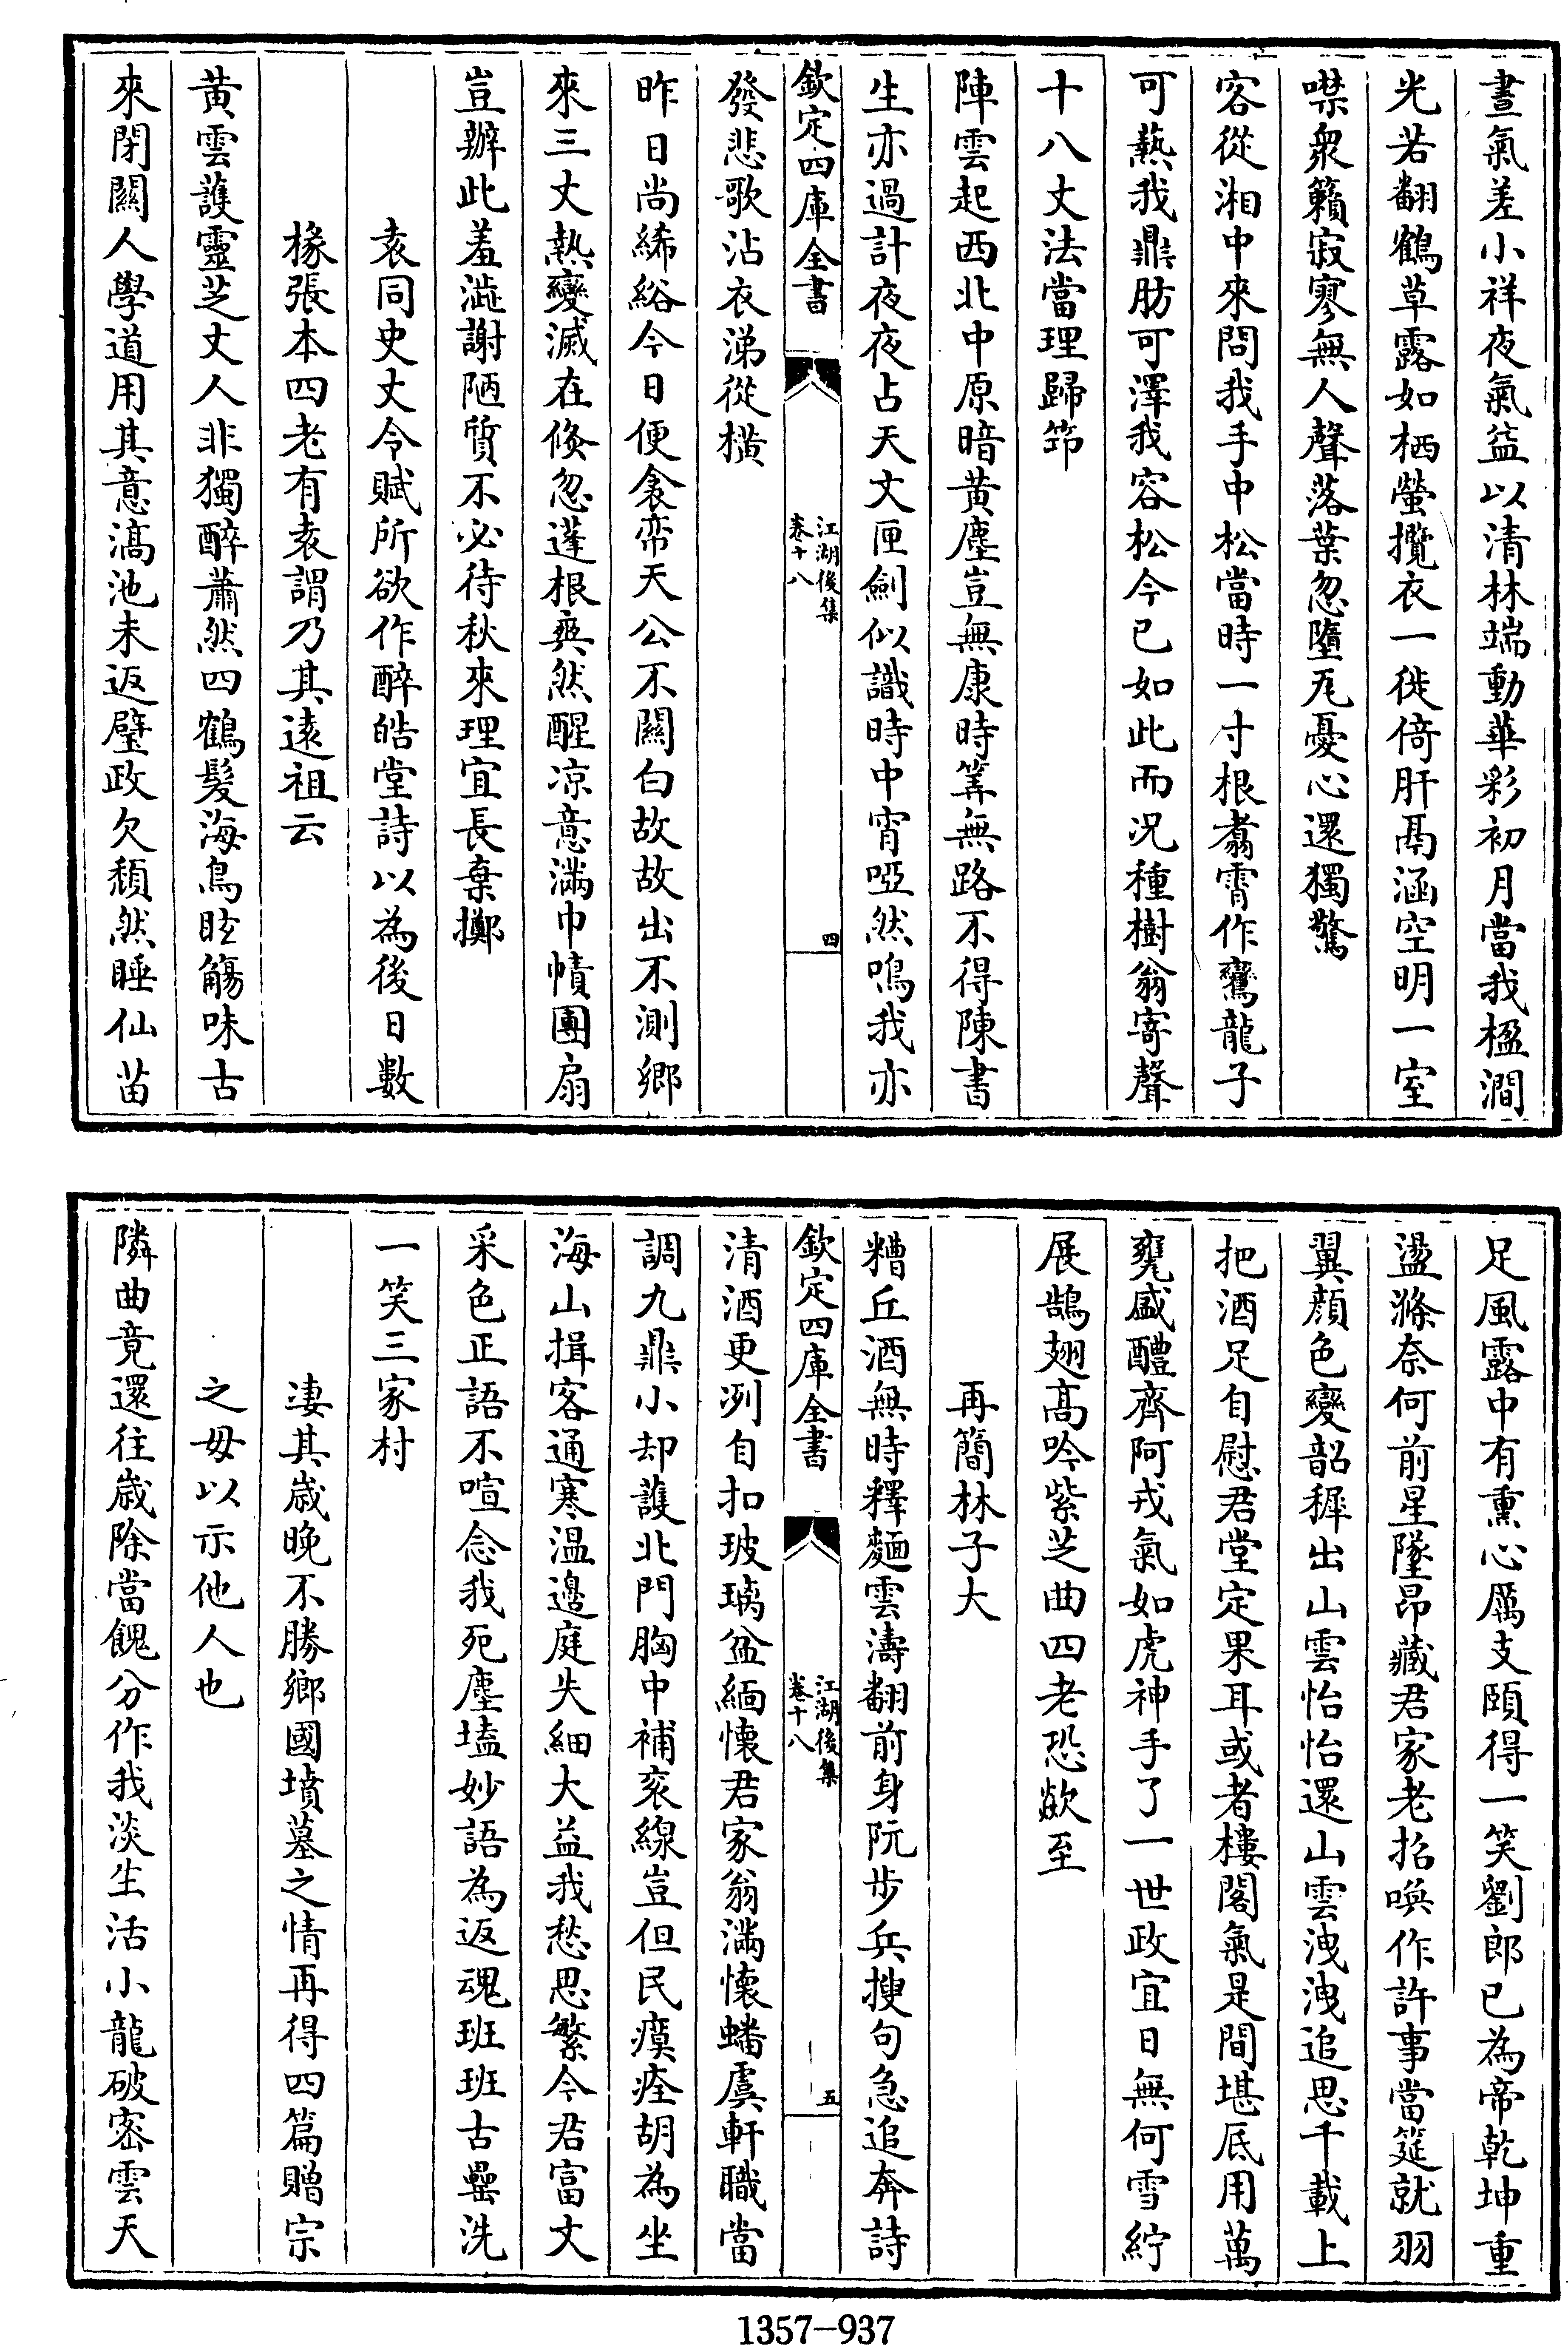 晝氣差小祥夜氣益以清林端動華彩初月當我楹澗
光若翻鶴草露如栖螢攬衣一徙倚肝鬲涵空明一室
噤衆籟寂寥無人聲落葉忽墮瓦憂心還獨驚
客從湘中來問我手中松當時一寸根翥霄作鸞龍子
可爇我鼎肪可澤我容松今已如此而况種樹翁寄聲
十八丈法當理歸筇
陣雲起西北中原暗黄塵豈無康時筭無路不得陳書
生亦過計夜夜占天文匣劍似識時中宵啞然鳴我亦
欽定四庫全書
江湖後集
卷十八
四
發悲歌沾衣涕從橫
昨日尚絺綌今日便衾帘天公不關白故故出不測鄉
來三丈熱變滅在倐忽蓬根爽然醒凉意滿巾幘團扇
豈辦此羞澁謝陋質不必待秋來理宜長棄擲
袁同史丈令賦所欲作醉皓堂詩以為後日數
椽張本四老有袁謂乃其逺祖云
黄雲護靈芝丈人非獨醉蕭然四鶴髮海鳥眩觴味古
來閉闗人學道用其意滈池未返璧政欠頽然睡仙苗
足風露中有熏心厲支頤得一笑劉郎已為帝乾坤重
盪滌奈何前星墜昂藏君家老招喚作許事當筵就羽
翼顔色變韶穉出山雲怡怡還山雲洩洩追思千載上
把酒足自慰君堂定果耳或者樓閣氣是間堪底用萬
甕盛醴齊阿戎氣如虎神手了一世政宜日無何雪紵
展鵠翅高吟紫芝曲四老恐歘至
再簡林子大
糟丘酒無時釋麯雲濤翻前身阮步兵搜句急追奔詩
欽定四庫全書
江湖後集
卷十八
五
清酒更冽自扣玻璃盆緬懷君家翁滿懷蟠虞軒職當
調九鼎小却護北門胸中補衮線豈但民瘼痊胡為坐
海山揖客通寒温邉庭失細大益我愁思繁今君富文
采色正語不喧念我死塵壒妙語為返魂班班古罍洗
一笑三家村
凄其歲晚不勝鄉國墳墓之情再得四篇贈宗
之毋以示他人也
隣曲竟還往歲除當餽分作我淡生活小龍破密雲天
1357-937